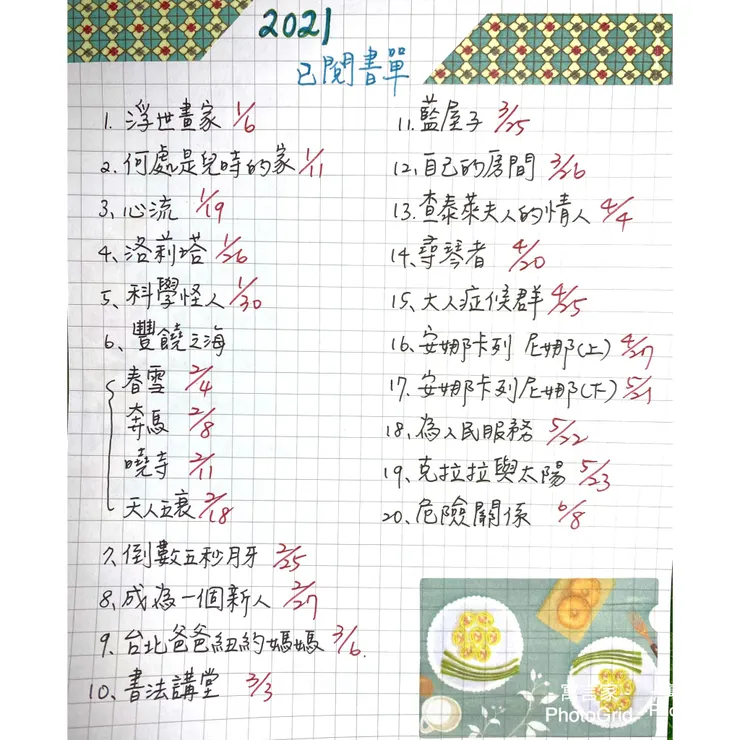 2021
已閱書單
1. 浮世畫家 1/6
2. 何處是兒時的家 1/11
3、心流 1/19
4、洛莉塔 1/26
5、科學怪人 1/30
6、豐饒之海
春雪 2/4
奔馬 2/8
曉寺 2/11
天人五衰 2/18
7、倒數五秒月牙 2/25
8、成為一個新人 2/27
9、台北爸爸紐約媽媽 3/6.
10、書法講堂 3/3
11. 藍屋子 3/25
12. 自己的房間 3/26
13. 查泰萊夫人的情人 4/4
14、尋琴者 4/20
15、大人症候群 4/25
16、安娜卡列尼娜(上) 4/27
17、安娜卡列尼娜(下) 5/21
18、為人民服務 5/22
19、克拉拉與太陽 5/23
20、危險關係 6/8
寓言家
PhotoGrid